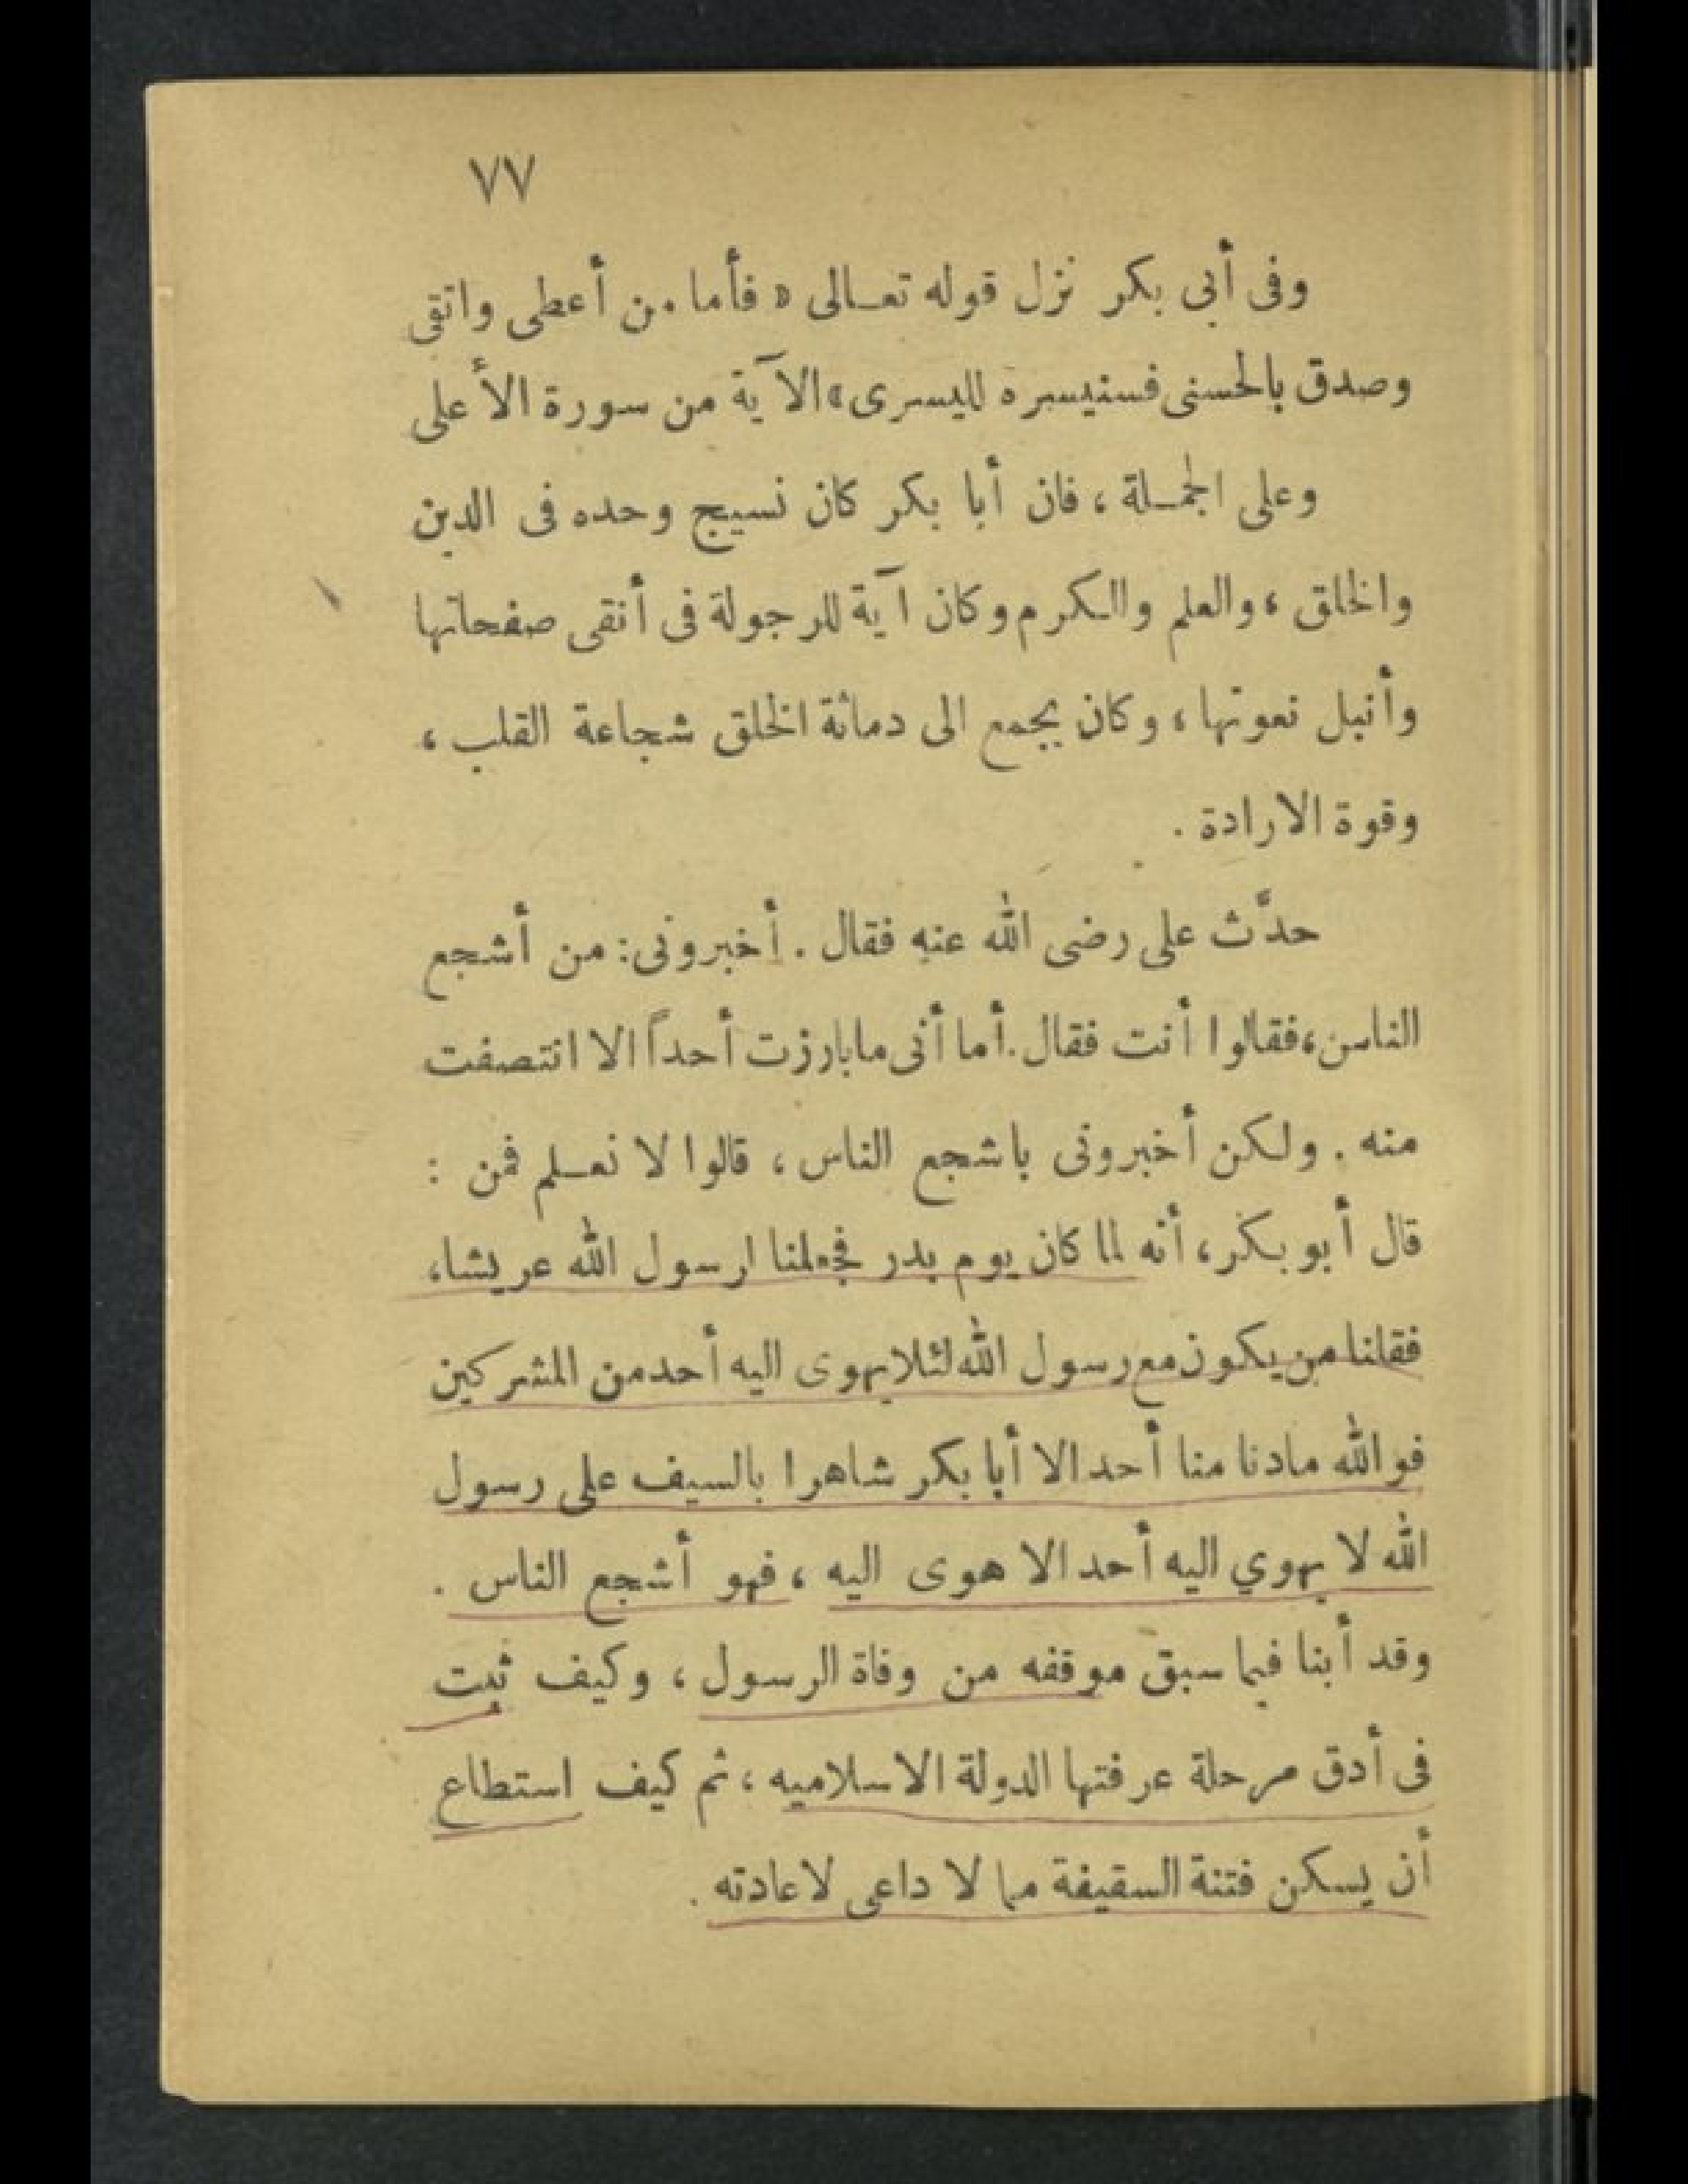 ٧٧
وفى أبى بكر نزل قوله تعالى « فأما من أعطى واتقى
وصدق بالحسنى فسنيسره لليسرى » الآية من سورة الأعلى
وعلى الجملة ، فان أبا بكر كان نسيج وحده فى الدين
والخلق ، والعلم والكرم وكان آية للرجولة فى أنقى صفحاتها
وأنبل نعوتها ، وكان يجمع الى دماثة الخلق شجاعة القلب ،
وقوة الارادة .
حدَّث على رضى الله عنه فقال . أخبرونى : من أشجع
الناس ، فقالوا أنت فقال . أما أنى ما بارزت أحداً الا انتصفت
منه . ولكن أخبرونى باشجع الناس ، قالوا لا نعلم فمن :
قال أبو بكر ، أنه لما كان يوم بدر فجعلنا لرسول الله عريشا ،
فقلنا من يكون مع رسول الله لئلا يهوى اليه أحد من المشركين
فوالله مادنا منا أحد الا أبا بكر شاهرا بالسيف على رسول
الله لا يهوي اليه أحد الا هوى اليه ، فهو أشجع الناس .
وقد أبنا فيما سبق موقفه من وفاة الرسول ، وكيف ثبت
فى أدق مرحلة عرفتها الدولة الاسلاميه ، ثم كيف استطاع
أن يسكن فتنة السقيفة مما لا داعى لاعادته .